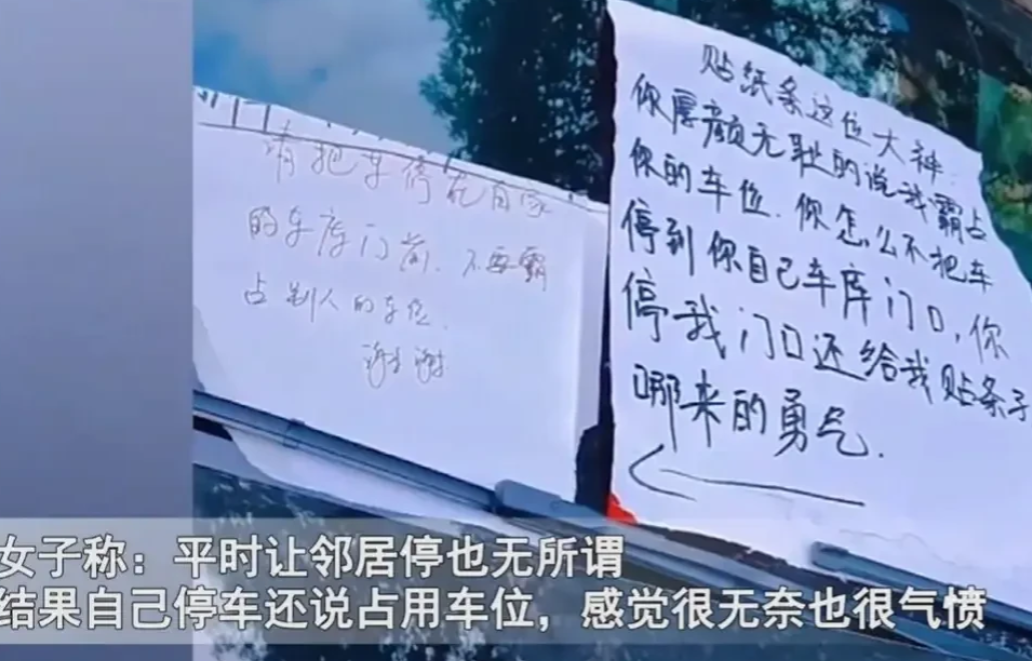 请把车停在自家
的车库门前.不要霸
占别人的车位.
谢谢
贴纸条这位大神:
你厚颜无耻的说我霸占
你的车位.你怎么不把车
停到你自己车库门口,你
停我门口还给我贴条子
哪来的勇气.
女子称：平时让邻居停也无所谓
结果自己停车还说占用车位，感觉很无奈也很气愤